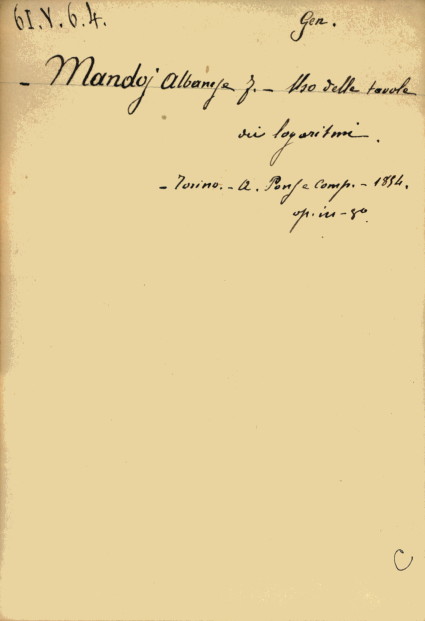 61.V.6.4.
Gen.
- Mandoj Albanese F. - Uso delle tavole
dei logaritmi.
- Torino. - A. Pons e comp. - 1854.
op. in-8º.
C